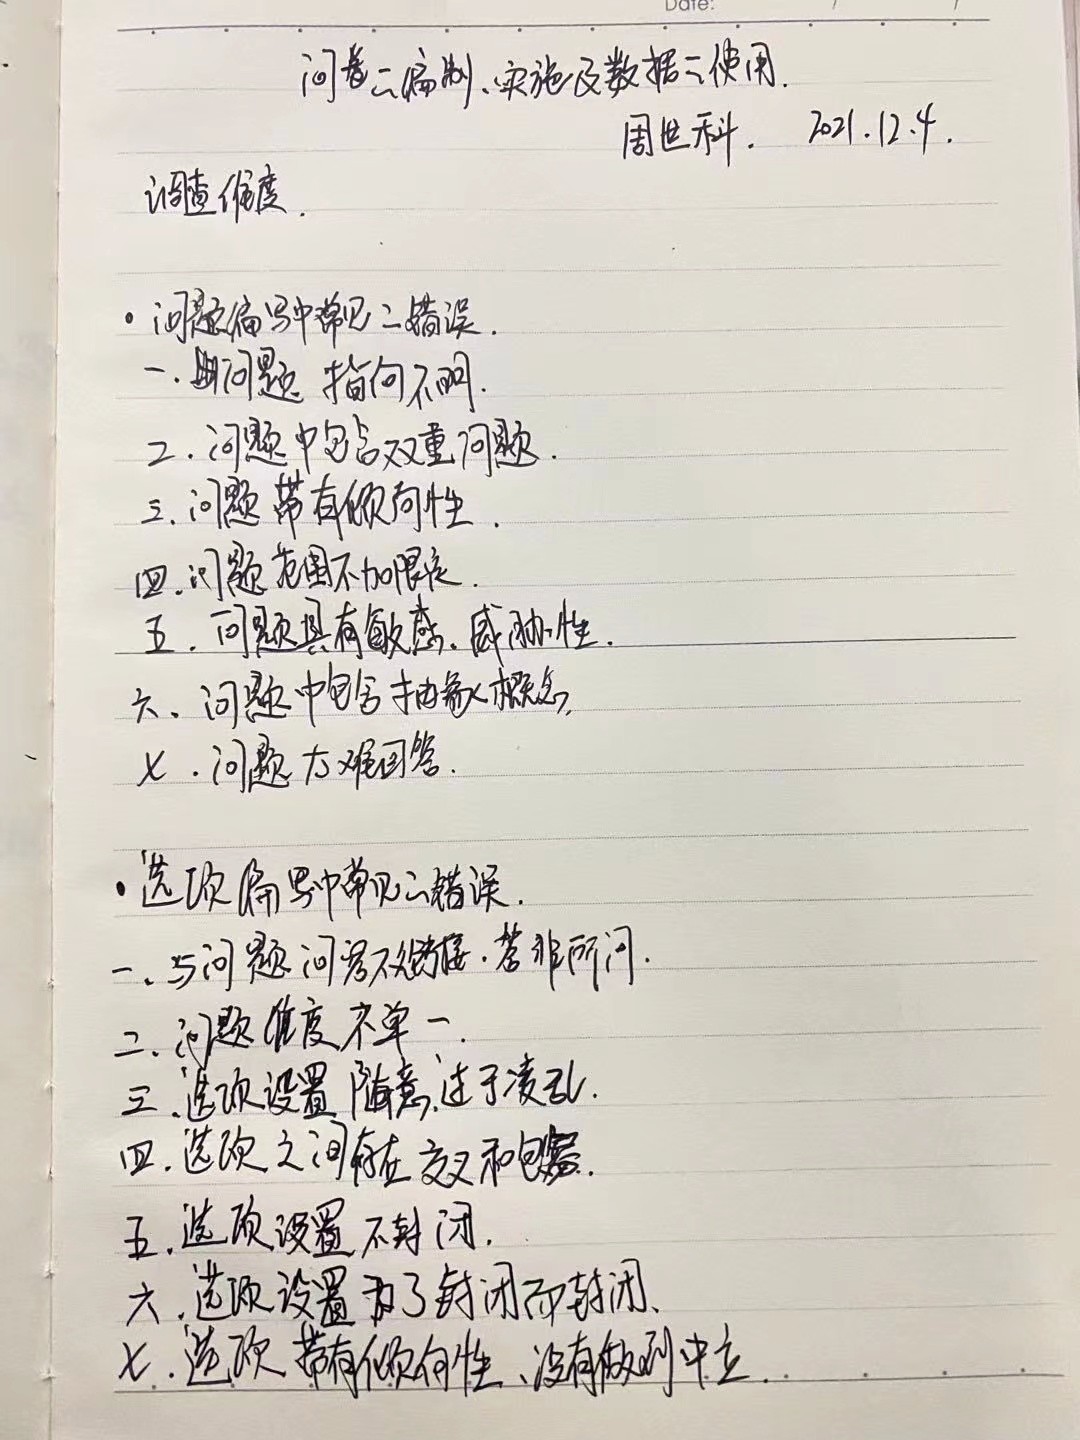 Date: / /
问卷之编制、实施及数据之使用.
周世科. 2021.12.4.
调查维度.
• 问题编写中常见之错误.
一. 问题 指向不明.
二. 问题中包含双重问题.
三. 问题带有倾向性.
四. 问题范围不加限定.
五. 问题具有敏感、威胁性.
六、问题中包含抽象概念.
七. 问题太难回答.
• 选项编写中常见之错误.
一、与问题问答不链接. 答非所问.
二、问题维度不单一.
三. 选项设置随意、过于凌乱.
四. 选项之间存在交叉和包容.
五. 选项设置不封闭.
六. 选项设置为了封闭而封闭、
七. 选项带有倾向性、没有做到中立.